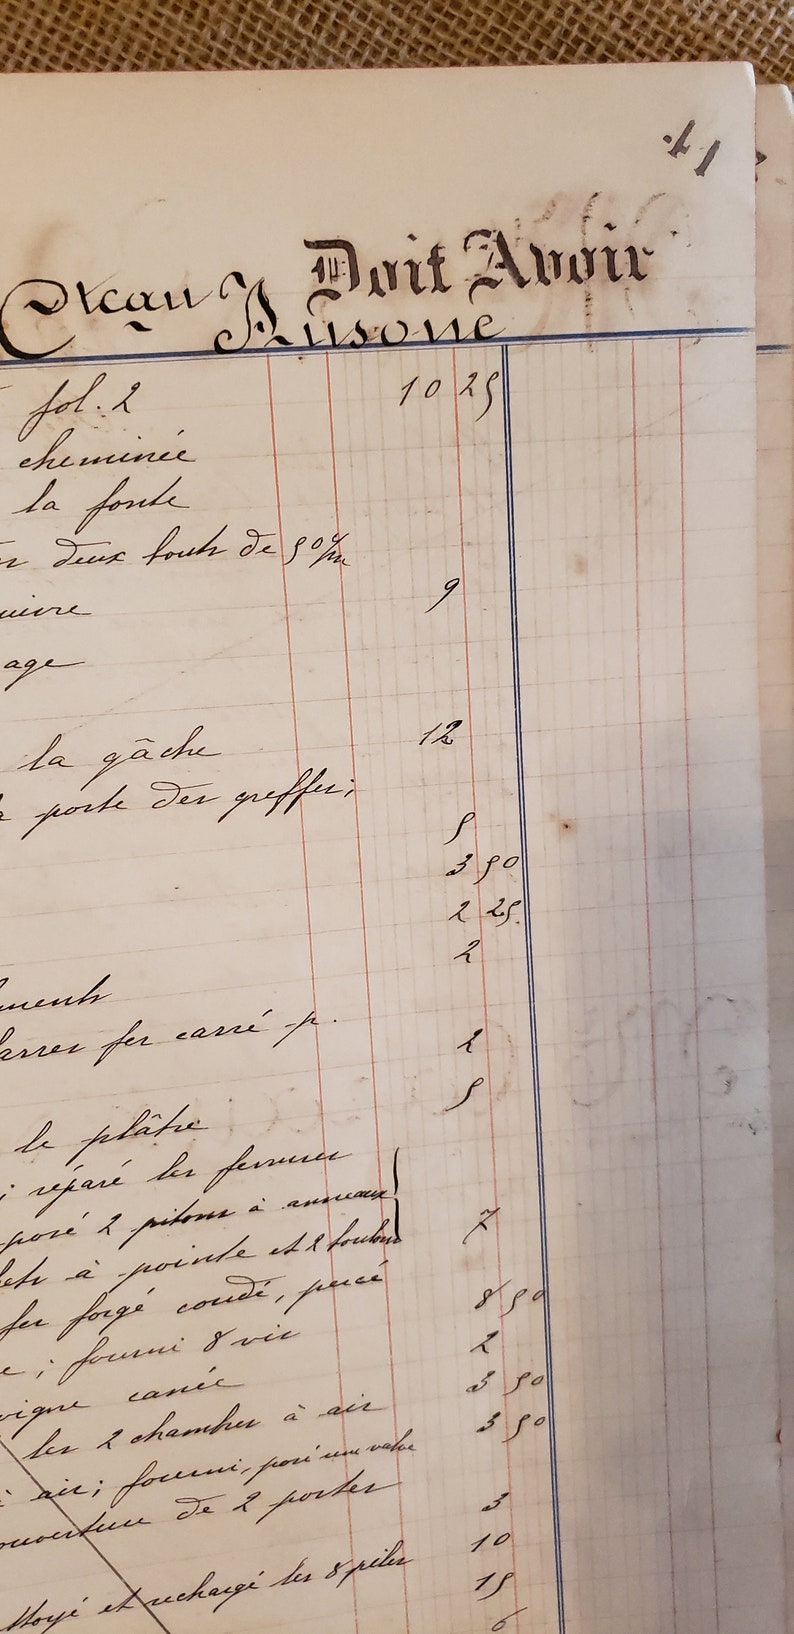 11
Doit Avoir
Ausone
fol. 2 10 25
cheminée
la fonte
deux bouts de 50 c/m
uivre 9
age
la gâche 12
porte des greffes;
5
3 50
2 25
2
ments
barres fer carré p. 2
5
le plâtre
; réparé les ferrures
posé 2 pitons à anneaux
ets à pointe et 2 boulons 7
fer forgé coudé, percé 8 50
e; fourni 8 vis 2
carrée 3 50
les 2 chambres à air 3 50
à air; fourni, posé une valve
ouverture de 2 portes 3
10
ttoyé et rechargé les 8 piles 15
6